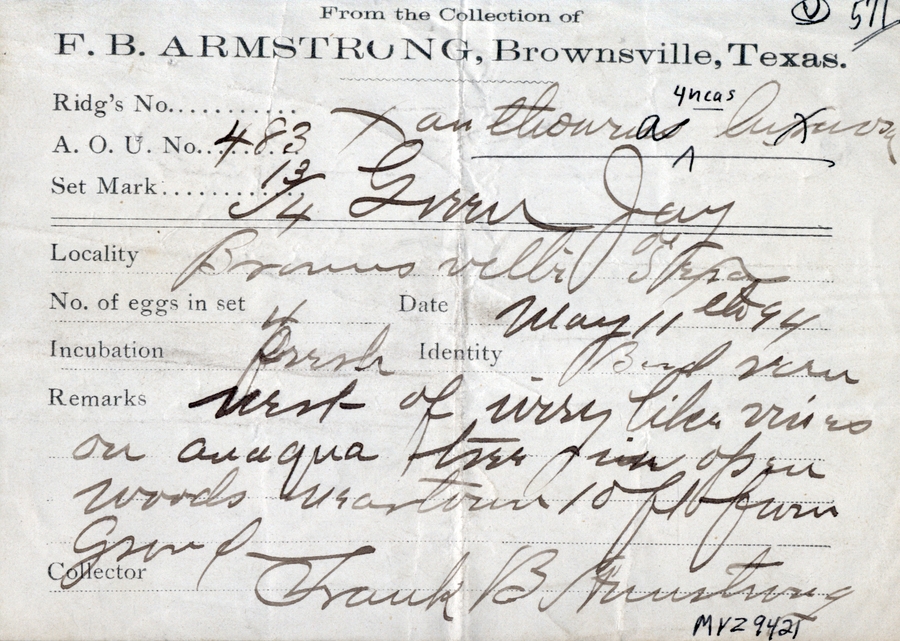 571
From the Collection of
F. B. ARMSTRONG, Brownsville, Texas.
Ridg's No.
yncas
Xanthouras luxuosa
A. O. U. No. 483
Set Mark 13/4 Green Jay
Locality Brownsville Texas
No. of eggs in set 4 Date May 11 94
Incubation Fresh Identity Bird seen
Remarks Nest of wiry like vines
on anaqua tree in open
woods near town 10 ft from
Ground
Collector Frank B Armstrong
MVZ 9421